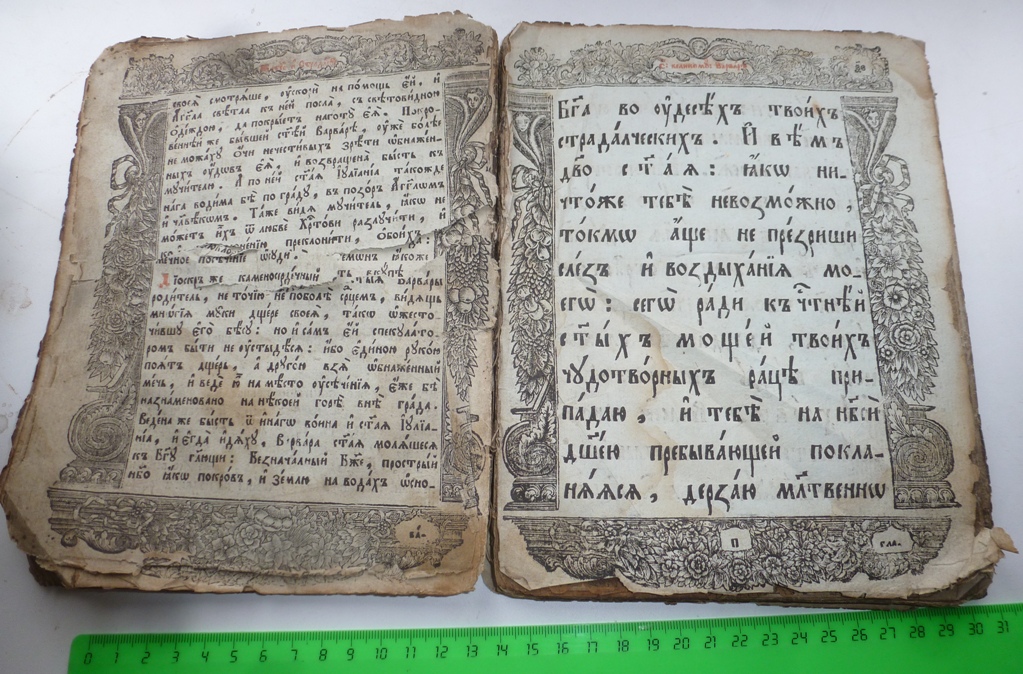 своеѧ̀ смотрѧше, ѹ҆скорѝ на по́мощь є҆́й, и҆
А҆́гг҃ла свѣ́тла къ не́й посла̀, съ свѣтови́дною
ѻ҆де́ждою, да покры́етъ наготꙋ̀ є҆ѧ̀. Покро-
ве́ннѣй же бы́вшей ст҃ѣ́й Варва́рѣ, ѹ҆жѐ бо́лѣе
не можа́хꙋ ѻ҆́чи нечести́выхъ зрѣ́ти ѡ҆бнаже́н-
ныхъ ѹ҆дѡ́въ є҆ѧ̀, и҆ возвраще́на бы́сть къ
мꙋчи́телю. А҆ по не́й ст҃а́ѧ І҆ꙋлїа́нїа та́кожде
нага̀ води́ма бѣ̀ по гра́дꙋ, въ позо́ръ А҆́гг҃лѡмъ
и҆ чл҃вѣ́кѡмъ. Та́же ви́дѧ мꙋчи́тель, ꙗ҆́кѡ не
мо́жетъ и҆́хъ ѿ любвѐ Хрⷭ҇то́вы разлꙋчи́ти, и҆
преклони́ти, ѻ҆бои́хъ
ме́чное посѣче́нїе ѡ҆сꙋдѝ.
Дїо́скоръ же каменосерде́чный Варва́ры
роди́тель, не то́чїю не поболѣ̀ срⷣцемъ, ви́дѧщь
мнѡ́гїѧ мꙋ́ки дще́ре своеѧ̀, та́кѡ ѡ҆жесто-
чи́вшꙋ є҆го̀ бѣ́сꙋ: но и҆ са́мъ є҆́й спекꙋла́то-
ромъ бы́ти не ѹ҆стыдѣ́сѧ: и҆́бо є҆ди́ною рꙋко́ю
поѧ́тъ дще́рь, а҆ дрꙋго́ю взѧ̀ ѡ҆бнаже́нный
ме́чь, и҆ ведѐ ю҆̀ на мѣ́сто ѹ҆сѣче́нїѧ, є҆́же бѣ̀
назнаменовано на нѣ́коей горѣ̀ внѣ̀ гра́да.
Веде́на же бы́сть ѿ и҆на́гѡ во́ина и҆ ст҃а́ѧ І҆ꙋлїа́-
нїа, и҆ є҆гда̀ и҆дѧ́хꙋ, Варва́ра ст҃а́ѧ молѧ́шесѧ
къ Бг҃ꙋ гл҃ющи: Безнача́лный Бж҃е, простры́й
нб҃о ꙗ҆́кѡ покро́въ, и҆ зе́млю на вода́хъ ѡ҆сно-
ва́-
Бг҃а во ѹ҆десѣ́хъ твои́хъ
страда́лческихъ. И҆ вѣ́мъ
дв҃о ст҃а́ѧ: ꙗ҆́кѡ ни-
что́же тебѣ̀ невозмо́жно,
то́кмѡ а҆́ще не пре́зриши
сле́зъ и҆ воздыха́нїѧ мо-
егѡ̀: сегѡ̀ ра́ди къ чⷭ҇тнѣ́й
ст҃ы́хъ моще́й твои́хъ
чꙋдотво́рныхъ ра́цѣ при-
па́даю, и҆ тебѣ̀ на нб҃сѝ
дш҃е́ю пребыва́ющей покла-
нѧ́ѧсѧ, дерза́ю мл҃твеннѡ
П
гла-
0 1 2 3 4 5 6 7 8 9 10 11 12 13 14 15 16 17 18 19 20 21 22 23 24 25 26 27 28 29 30 31